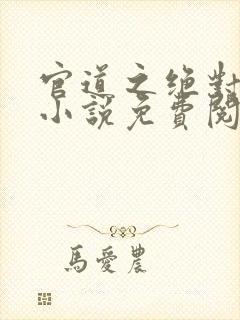 官道之絶對
小說免費閱
馬愛農